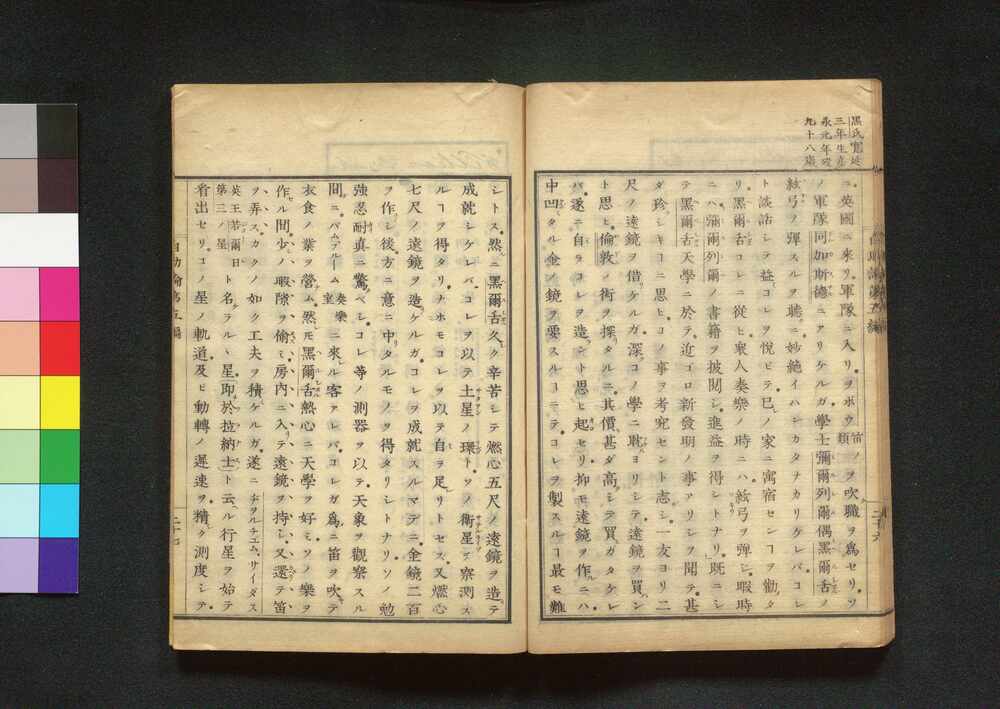 黒氏寛延
三年生
永元年
九十八歳
ニ英國ニ來リ軍隊ニ入リヲボウ笛類ノヲ吹職ヲ爲セリソ
ノ軍隊同加斯德ニアリケルガ學士彌爾列爾偶黒爾舌ノ
絃弓ノ彈スルヲ聽ニ妙絶イハンカタナカリケレバコレ
ト談話シテ益コレヲ悦ビテ己ノ家ニ寓宿センコヲ勸タ
リ黒爾舌コレニ從ヒ衆人奏樂ノ時ニハ絃弓ヲ彈シ暇時
ニハ彌爾列爾ノ書籍ヲ披閲シ進益ヲ得シトナリ既ニシ
テ黒爾舌天學ニ於テ近ゴロ新發明ノ事アリシヲ聞テ甚
ダ珍シキコニ思ヒコノ事ヲ考究セント志シ一友ヨリ二
尺ノ遠鏡ヲ借ケルガ深コノ學ニ耽ヨリシテ遠鏡ヲ買ン
ト思ヒ倫敦ノ術ヲ探タルニ其價甚ダ高シテ買ガタケレ
バ遂ニ自ラコレヲ造ント思ヒ起セリ抑モ遠鏡ヲ作ニハ
中凹タル金ノ鏡ヲ要スルコニテコレヲ製スルコ最モ難
シトス然ニ黒爾舌久ク辛苦シテ燃心五尺ノ遠鏡ヲ造テ
成就シケレバコレヲ以テ土星ノ環トソノ衛星ヲ察測ス
ルコヲ得タリナホモコレヲ以テ自ヲ足リトセス又燃心
七尺ノ遠鏡ヲ造ケルガコレヲ成就スルマデニ金鏡二百
ヲ作シ後方ニ意ニ中タルモノヲ得タリシトナリソノ勉
強忍耐真ニ驚ベシコレ等ノ測器ヲ以テ天象ヲ觀察スル
間ニパムプルーム奏樂室ニ來ル客アレバコレガ爲ニ笛ヲ吹テ
衣食ノ業ヲ營ム然モ黒爾舌熱心ニ天學ヲ好ミソノ樂ヲ
作ル間少ノ暇隙ヲ偷ミ房内ニ入テ遠鏡ヲ持シ又還テ笛
ヲ弄スカクノ如ク工夫ヲ積ケルガ遂ニヂヲルヂユムサイダス
英王若爾日第三ノ星ト名ラル丶星即於拉納士ト云ル行星ヲ始テ
省出セリコノ星ノ軌道及ヒ動轉ノ遲速ヲ精ク測度シテ
自助論第五編
二十七